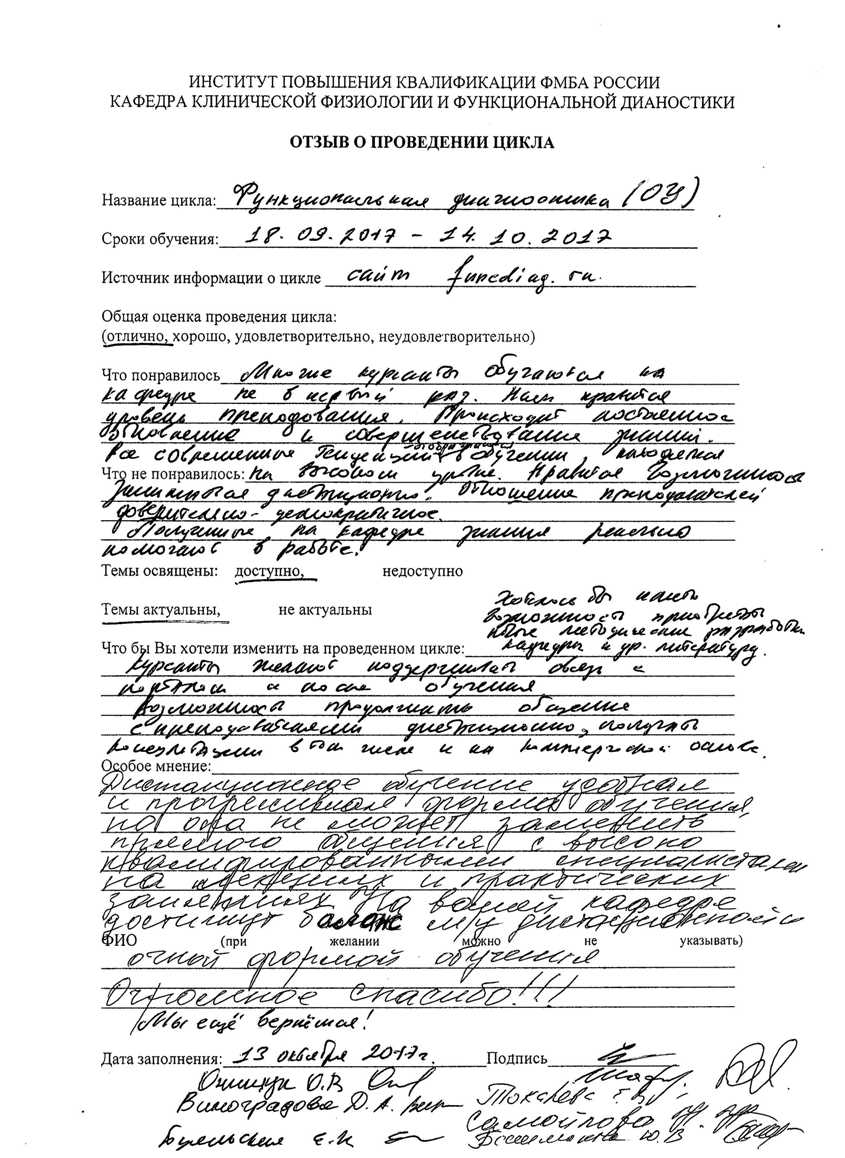 ИНСТИТУТ ПОВЫШЕНИЯ КВАЛИФИКАЦИИ ФМБА РОССИИ
КАФЕДРА КЛИНИЧЕСКОЙ ФИЗИОЛОГИИ И ФУНКЦИОНАЛЬНОЙ ДИАНОСТИКИ
ОТЗЫВ О ПРОВЕДЕНИИ ЦИКЛА
Название цикла: Функциональная диагностика (ОУ)
Сроки обучения: 18.09.2017 - 14.10.2017
Источник информации о цикле сайт funcdiag.ru.
Общая оценка проведения цикла:
(отлично, хорошо, удовлетворительно, неудовлетворительно)
Что понравилось Многие курсанты обучаются на
кафедре не в первый раз. Нам нравится
уровень преподования. Происходит постоянное
обновление и совершенствование знаний.
Все современные тенденции в обучении, находятся
Что не понравилось: на высоком уровне. Нравится возможность
дистанционно. Отношение преподавателей
доверительно-демократичное.
Полученные на кафедре знания реально
помогают в работе.
Темы освящены: доступно, недоступно
Хотелось бы иметь
возможность приобрести
Темы актуальны, не актуальны
методические разработки
Что бы Вы хотели изменить на проведенном цикле: кафедры и др. литературу.
Курсанты желают поддерживать связь с
и после обучения
возможность продолжить общение
с преподавателями дистанционно, получать
консультации в том числе и на коммерческой основе.
Особое мнение:
Дистанционное обучение удобная
и прогрессивная форма обучения,
но она не может заменить
прямого общения с высоко
квалифицированными специалистами
на лекциях и практических
занятиях. На вашей кафедре
достигнут баланс м/у дистанционной и
ФИО (при желании можно не указывать)
очной формой обучения
Огромное спасибо!!!
Мы ещё вернёмся!
Дата заполнения: 13 октября 2017г. Подпись
О.В
Виноградова Д.А. Токарева
Самойлова
Е.К Ю.В